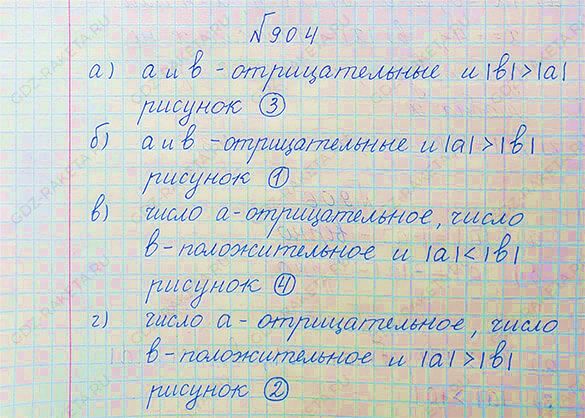 №904
а) а и в - отрицательные и |в|>|а|
рисунок ③
б) а и в - отрицательные и |а|>|в|
рисунок ①
в) число а - отрицательное, число
в - положительное и |а|<|в|
рисунок ④
г) число а - отрицательное, число
в - положительное и |а|>|в|
рисунок ②
GDZ-RAKETA.RU